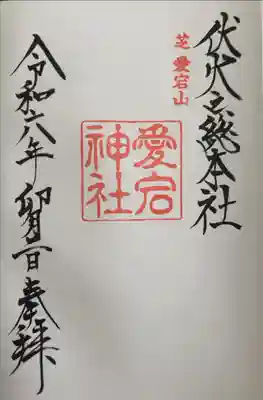 伏火之総本社
芝 愛宕山
愛宕
神社
令和六年 卯月一日 奉拝